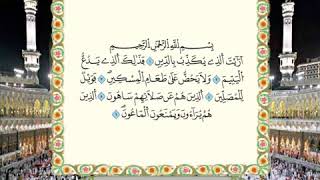 بِسْمِ اللَّهِ الرَّحْمَٰنِ الرَّحِيمِ
أَرَأَيْتَ الَّذِي يُكَذِّبُ بِالدِّينِ ۝ فَذَٰلِكَ الَّذِي يَدُعُّ
الْيَتِيمَ ۝ وَلَا يَحُضُّ عَلَىٰ طَعَامِ الْمِسْكِينِ ۝ فَوَيْلٌ
لِّلْمُصَلِّينَ ۝ الَّذِينَ هُمْ عَن صَلَاتِهِمْ سَاهُونَ ۝ الَّذِينَ
هُمْ يُرَاءُونَ وَيَمْنَعُونَ الْمَاعُونَ ۝